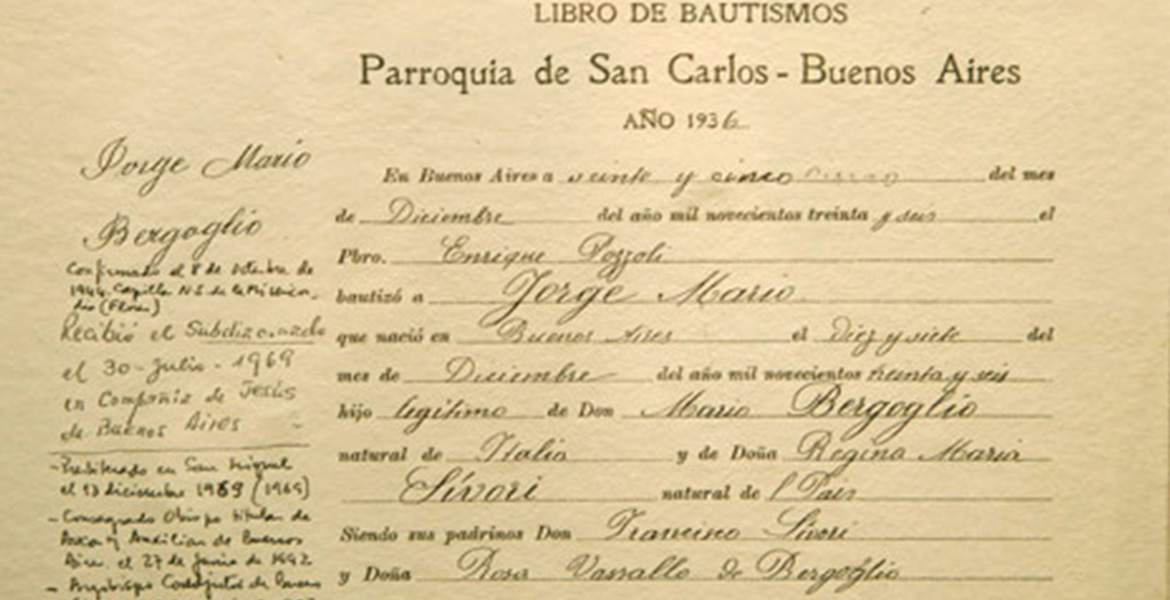 LIBRO DE BAUTISMOS
Parroquia de San Carlos - Buenos Aires
AÑO 1936
Jorge Mario
Bergoglio
Confirmado el 8 de Octubre de
1944. Capilla N.S. de la Misericor-
dia (Flores)
Recibió el Subdiaconado
el 30-Julio-1969
en Compañia de Jesús
de Buenos Aires
- Presbiterado en San Miguel
el 13 diciembre 1969 (1969)
- Consagrado Obispo titular de
Auca y Auxiliar de Buenos
Aires el 27 de Junio de 1992
- Arzobispo Coadjutor de Buenos
En Buenos Aires a veinte y cinco del mes
de Diciembre del año mil novecientos treinta y seis el
Pbro. Enrique Pozzoli
bautizó a Jorge Mario
que nació en Buenos Aires el diez y siete del
mes de Diciembre del año mil novecientos treinta y seis
hijo legítimo de Don Mario Bergoglio
natural de Italia y de Doña Regina Maria
Sívori natural de l Pais
Siendo sus padrinos Don Francisco Sívori
y Doña Rosa Vassallo de Bergoglio